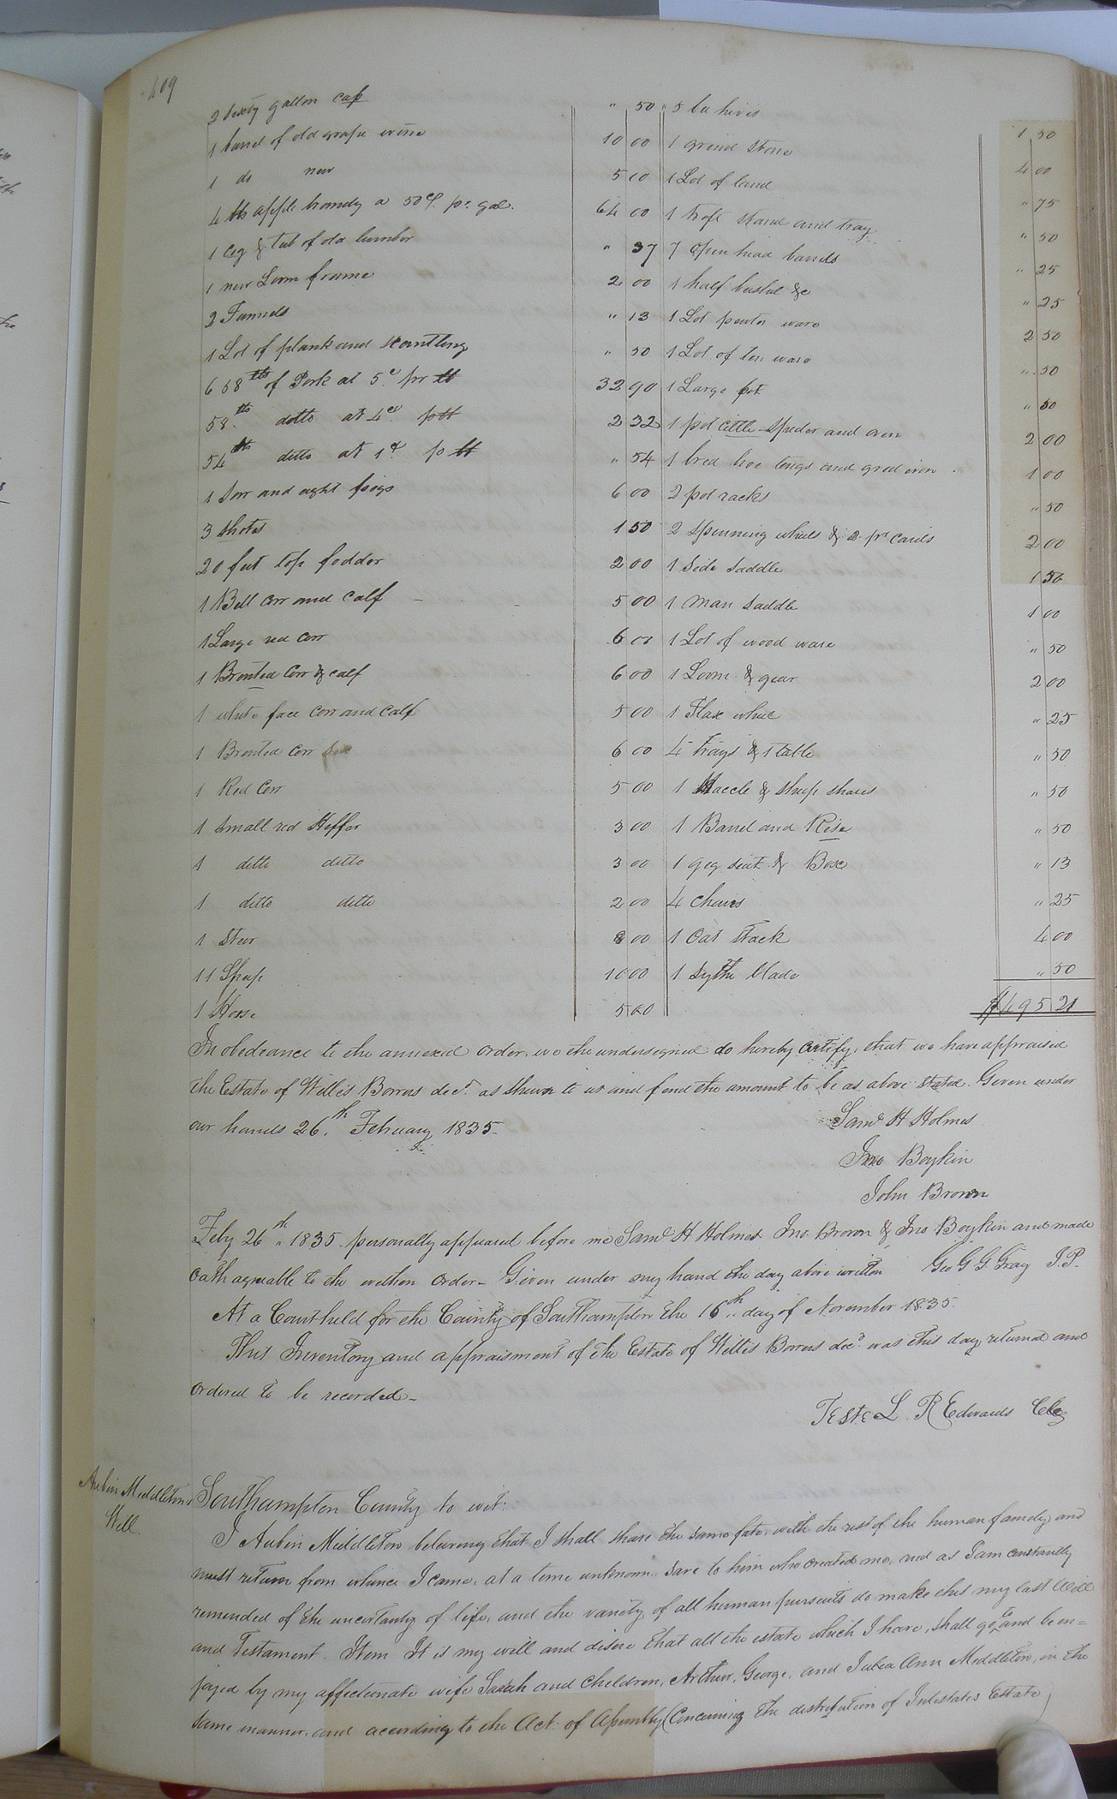 409
2 Sixty gallon cask " 50
1 barrel of old grape wine 10 00
1 do new 5 00
4 bbs apple brandy a 50cts. pr. gal. 64 00
1 Ceg & tub of old lumber " 37
1 new Loom frame 2 00
2 Funnels " 13
1 Lot of plank and scantling " 50
658 lbs of Pork at 5c pr lb 32 90
58 lbs ditto at 4cs p lb 2 32
54 lbs ditto at 1ct p lb " 54
1 Sow and eight pigs 6 00
3 Shotes 1 50
20 feet top fodder 2 00
1 Bell Cow and calf 5 00
1 Large red Cow 6 00
1 Brented Cow & calf 6 00
1 white face Cow and Calf 5 00
1 Brented Cow 6 00
1 Red Cow 5 00
1 Small red Heffer 3 00
1 ditto ditto 3 00
1 ditto ditto 2 00
1 Steer 8 00
11 Sheep 10 00
1 Horse 5 00
5 bee hives 1 50
1 grind stone 4 00
1 Lot of " 75
1 stand and tray " 50
7 open head barrels " 25
1 half bushel &c " 25
1 Lot pewter ware 2 50
1 Lot of tin ware " 50
1 Large pot " 50
1 pot cittle Spider and oven 2 00
1 hoe tongs and gred iron 1 00
2 pot racks " 50
2 Spinning wheels & 2 pr. cards 2 00
1 Side Saddle 1 50
1 man Saddle 1 00
1 Lot of wood ware " 50
1 Loom & gear 2 00
1 Flax wheel " 25
4 trays & 1 table " 50
1 Haccle & Sheep shears " 50
1 Barrel and Rise " 50
1 gig seat & Box " 13
4 Chairs " 25
1 Oat Stack 4 00
1 Sythe blade " 50
$495 21
In obedeance to the annexed order, we the undersegned do hereby certify, that we have appraised
the Estate of Willis Borrus decd. as Shewn to us and fend the amount to be as above stated. Given under
our hands 26th. February 1835.
Saml H Holmes
Jno Boykin
John Brown
Feby 26th. 1835. personally appeared before me Saml H Holmes Jno Brown & Jno Boykin and made
Oath agreable to the within Order - Given under my hand the day above written Geo G G Gray J.P.
At a Court held for the County of Southampton the 16th. day of November 1835.
This Inventory and appraisment of the Estate of Willis Borrus decd. was this day returned and
ordered to be recorded -
Teste L. R Edwards Clk
Aubin Middleton's
Will.
Southampton County to wit:
I Aubin Middleton believing that I shall share the same fate, with the rest of the human family, and
must return from whence I came, at a time unknown, save to him who created me, and as I am constantly
reminded of the uncertanty of life, and the vanity of all human pursuits do make this my last Will
and Testament. Item It is my will and desire that all the estate which I have, shall go to, and be en=
joyed by my affectionate wife Sarah and Children, Arthur, George, and Julia Ann Middleton, in the
same manner, and according to the Act of Assembly (Concerning the distribution of Intestates Estate)